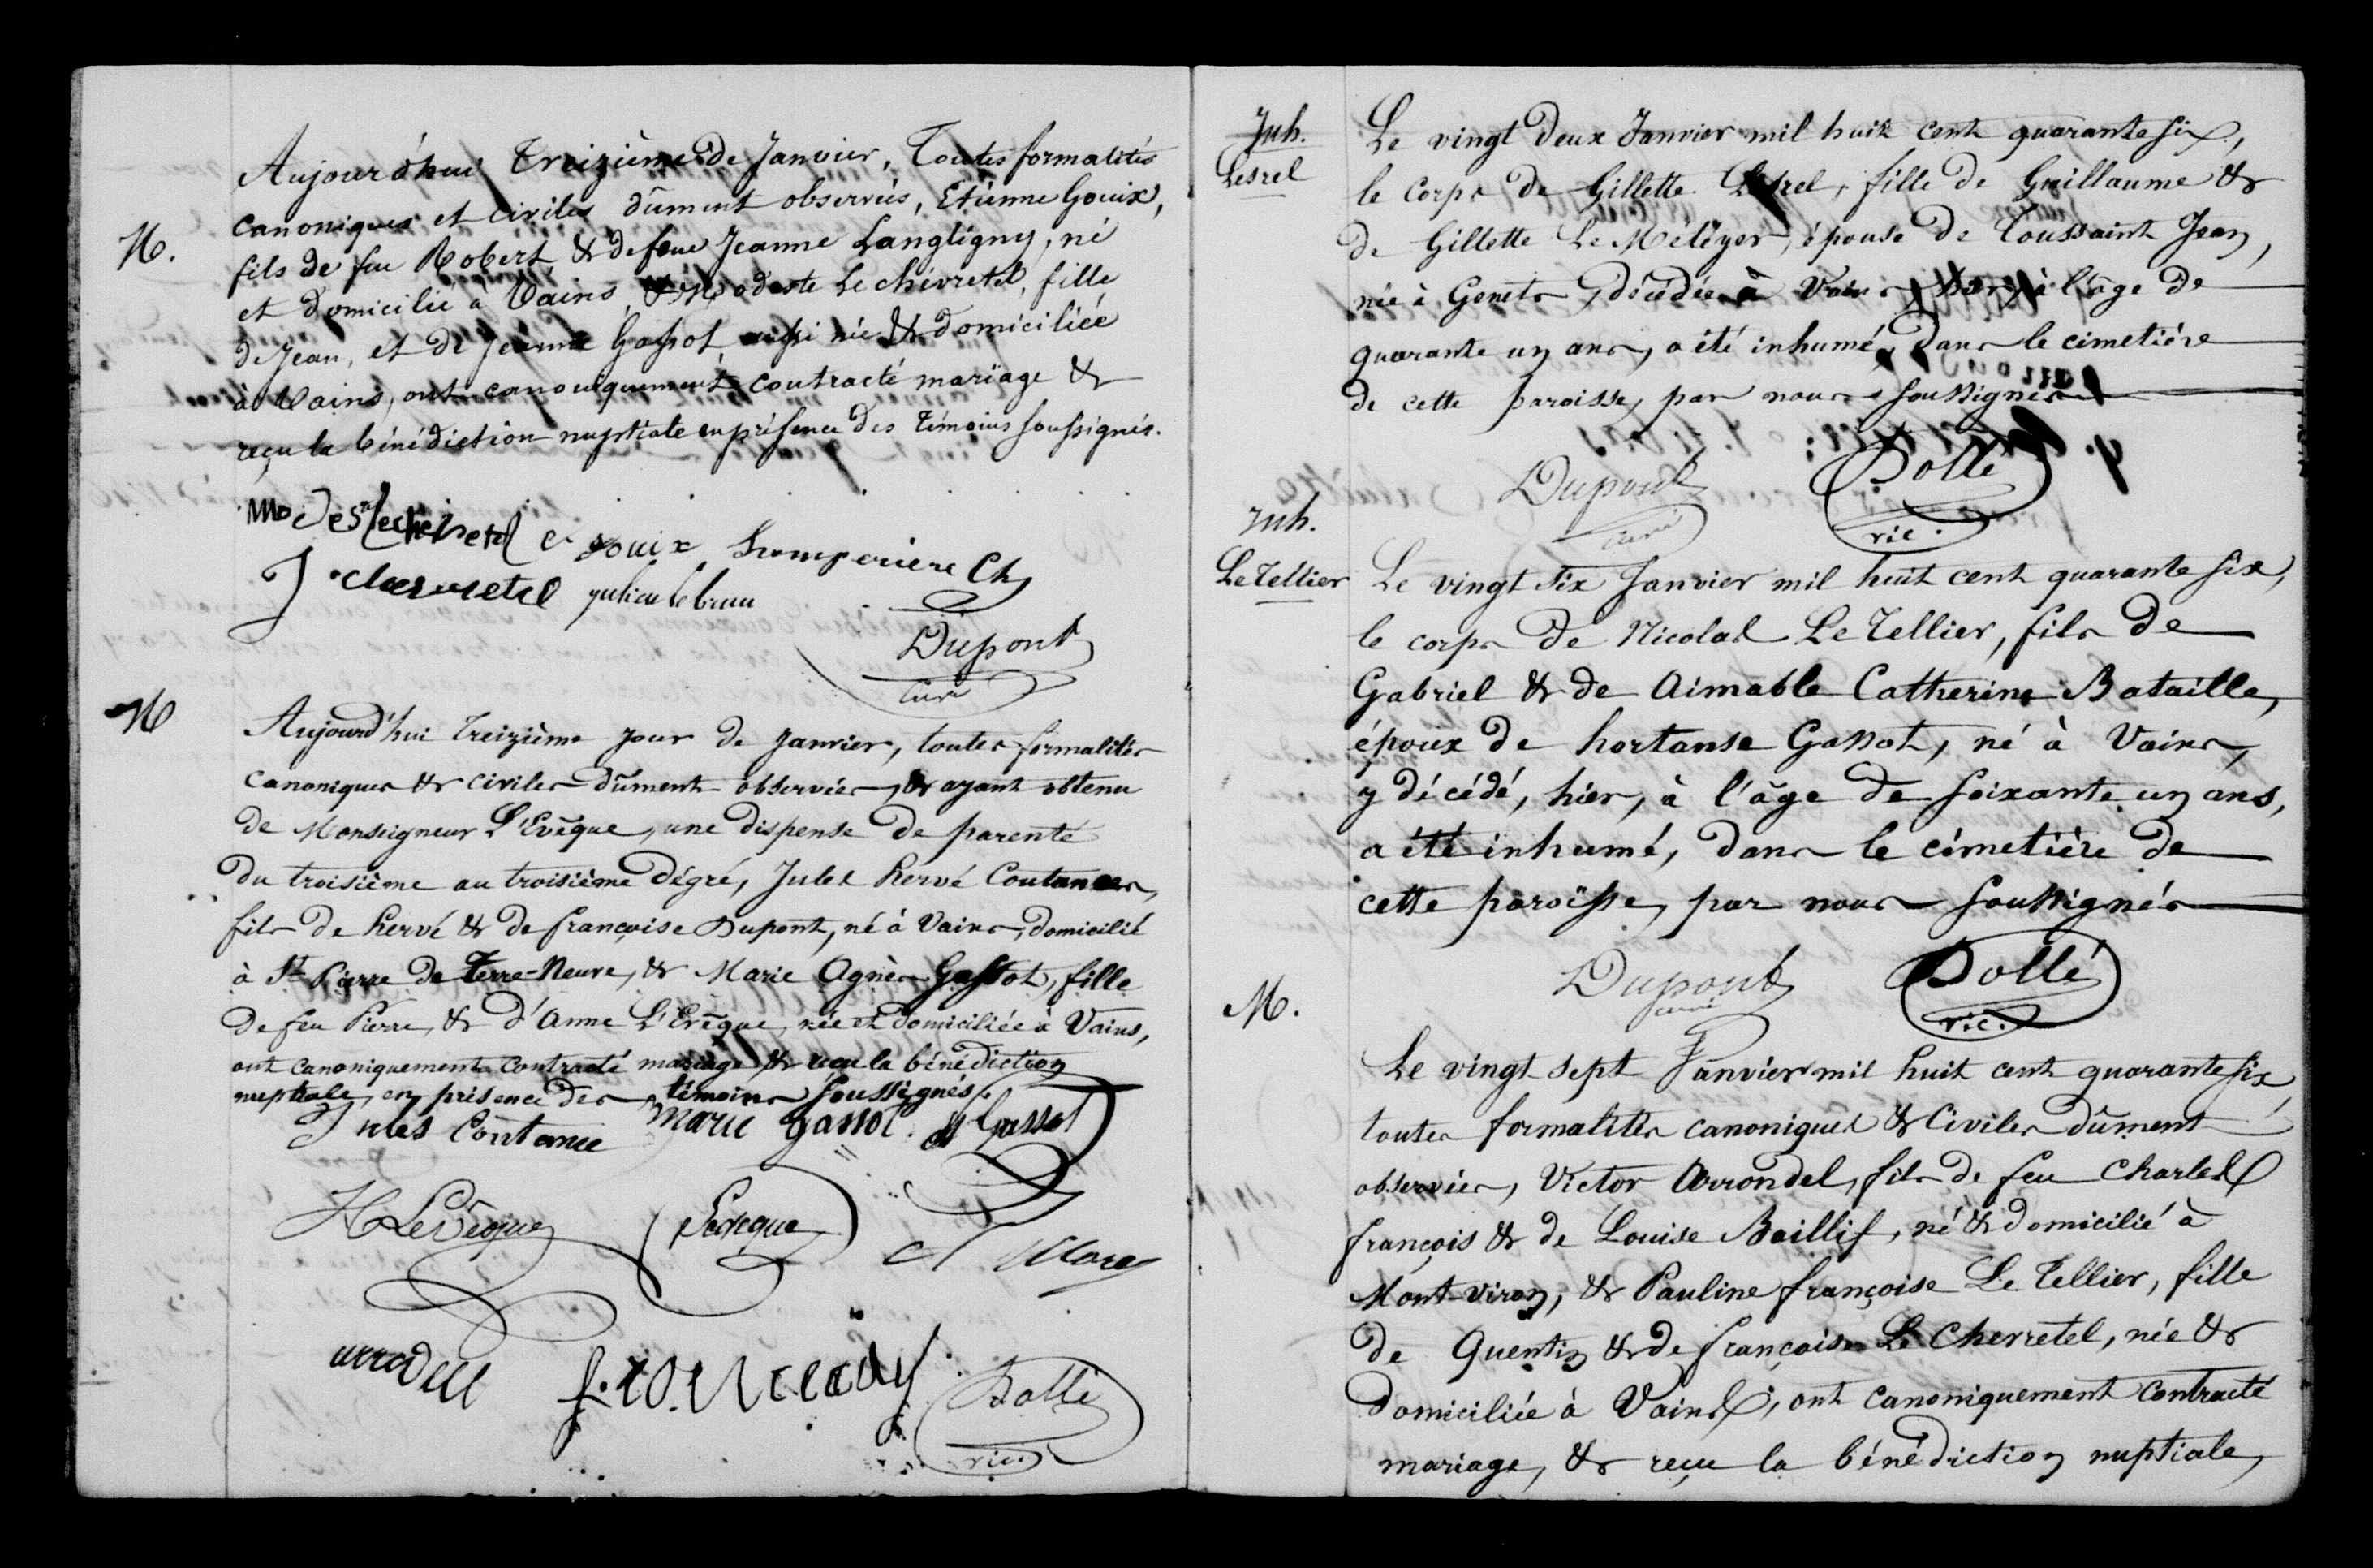 Aujourd'hui Treizième de Janvier, Toutes formalités
canoniques et civiles dûment observées, Etienne Gouix,
M.
fils de feu Robert & de feue Jeanne Langligny, né
et domicilié à Vains, & Modeste Le chevretel, fille
de Jean, et de Jeanne Gassot, aussi née & domiciliée
à Vains, ont canoniquement contracté mariage &
reçu la bénédiction nuptiale en présence des témoins soussignés.
e gouix
julien lebrun
Dupont
curé
M
Aujourd'hui treizième jour de janvier, toutes formalités
canoniques & civiles dûment observées, & ayant obtenu
de Monseigneur L'Evêque, une dispense de parenté
du troisième au troisième dégré, Jules hervé Coutances,
fils de hervé & de françoise Dupont, né à Vains, domicilié
à St Pierre de Terre-Neuve, & Marie Agnès Gassot, fille
de feu Pierre, & d'Anne L'Evêque, née et domiciliée à Vains,
ont canoniquement contracté mariage & reçu la bénédiction
nuptiale, en présence des témoins soussignés.
Jules Contance Marie gassot. Gassot
H Levêque Leveque
Dollé
vic.
Inh.
Lesrel
Le vingt deux Janvier mil huit cent quarante six,
le corps de Gillette Lesrel, fille de Guillaume &
de Gillette Le Métêyer, épouse de Toussaint Jean,
née à Genets, décédée à Vains, hier, à l'âge de
quarante un ans, a été inhumé, dans le cimetière
de cette paroisse, par nous soussignés
Dupont Dollé
curé vic.
Inh.
Le Tellier
Le vingt six Janvier mil huit cent quarante six,
le corps de Nicolas Le Tellier, fils de
Gabriel & de Aimable Catherine Bataille,
époux de hortanse Gassot, né à Vains,
y décédé, hier, à l'âge de soixante un ans,
a été inhumé, dans le cimetière de
cette paroisse, par nous soussignés
Dupont Dollé
curé vic.
M.
Le vingt sept Janvier mil huit cent quarante six
toutes formalités canoniques & Civiles dûment
observées, Victor Arrondel, fils de feu Charles
françois & de Louise Baillif, né & domicilié à
Mont-viron, & Pauline françoise Le Tellier, fille
de Quentin & de françoise Le Cherretel, née &
domiciliée à Vains, ont canoniquement contracté
mariage, & reçu la bénédiction nuptiale,